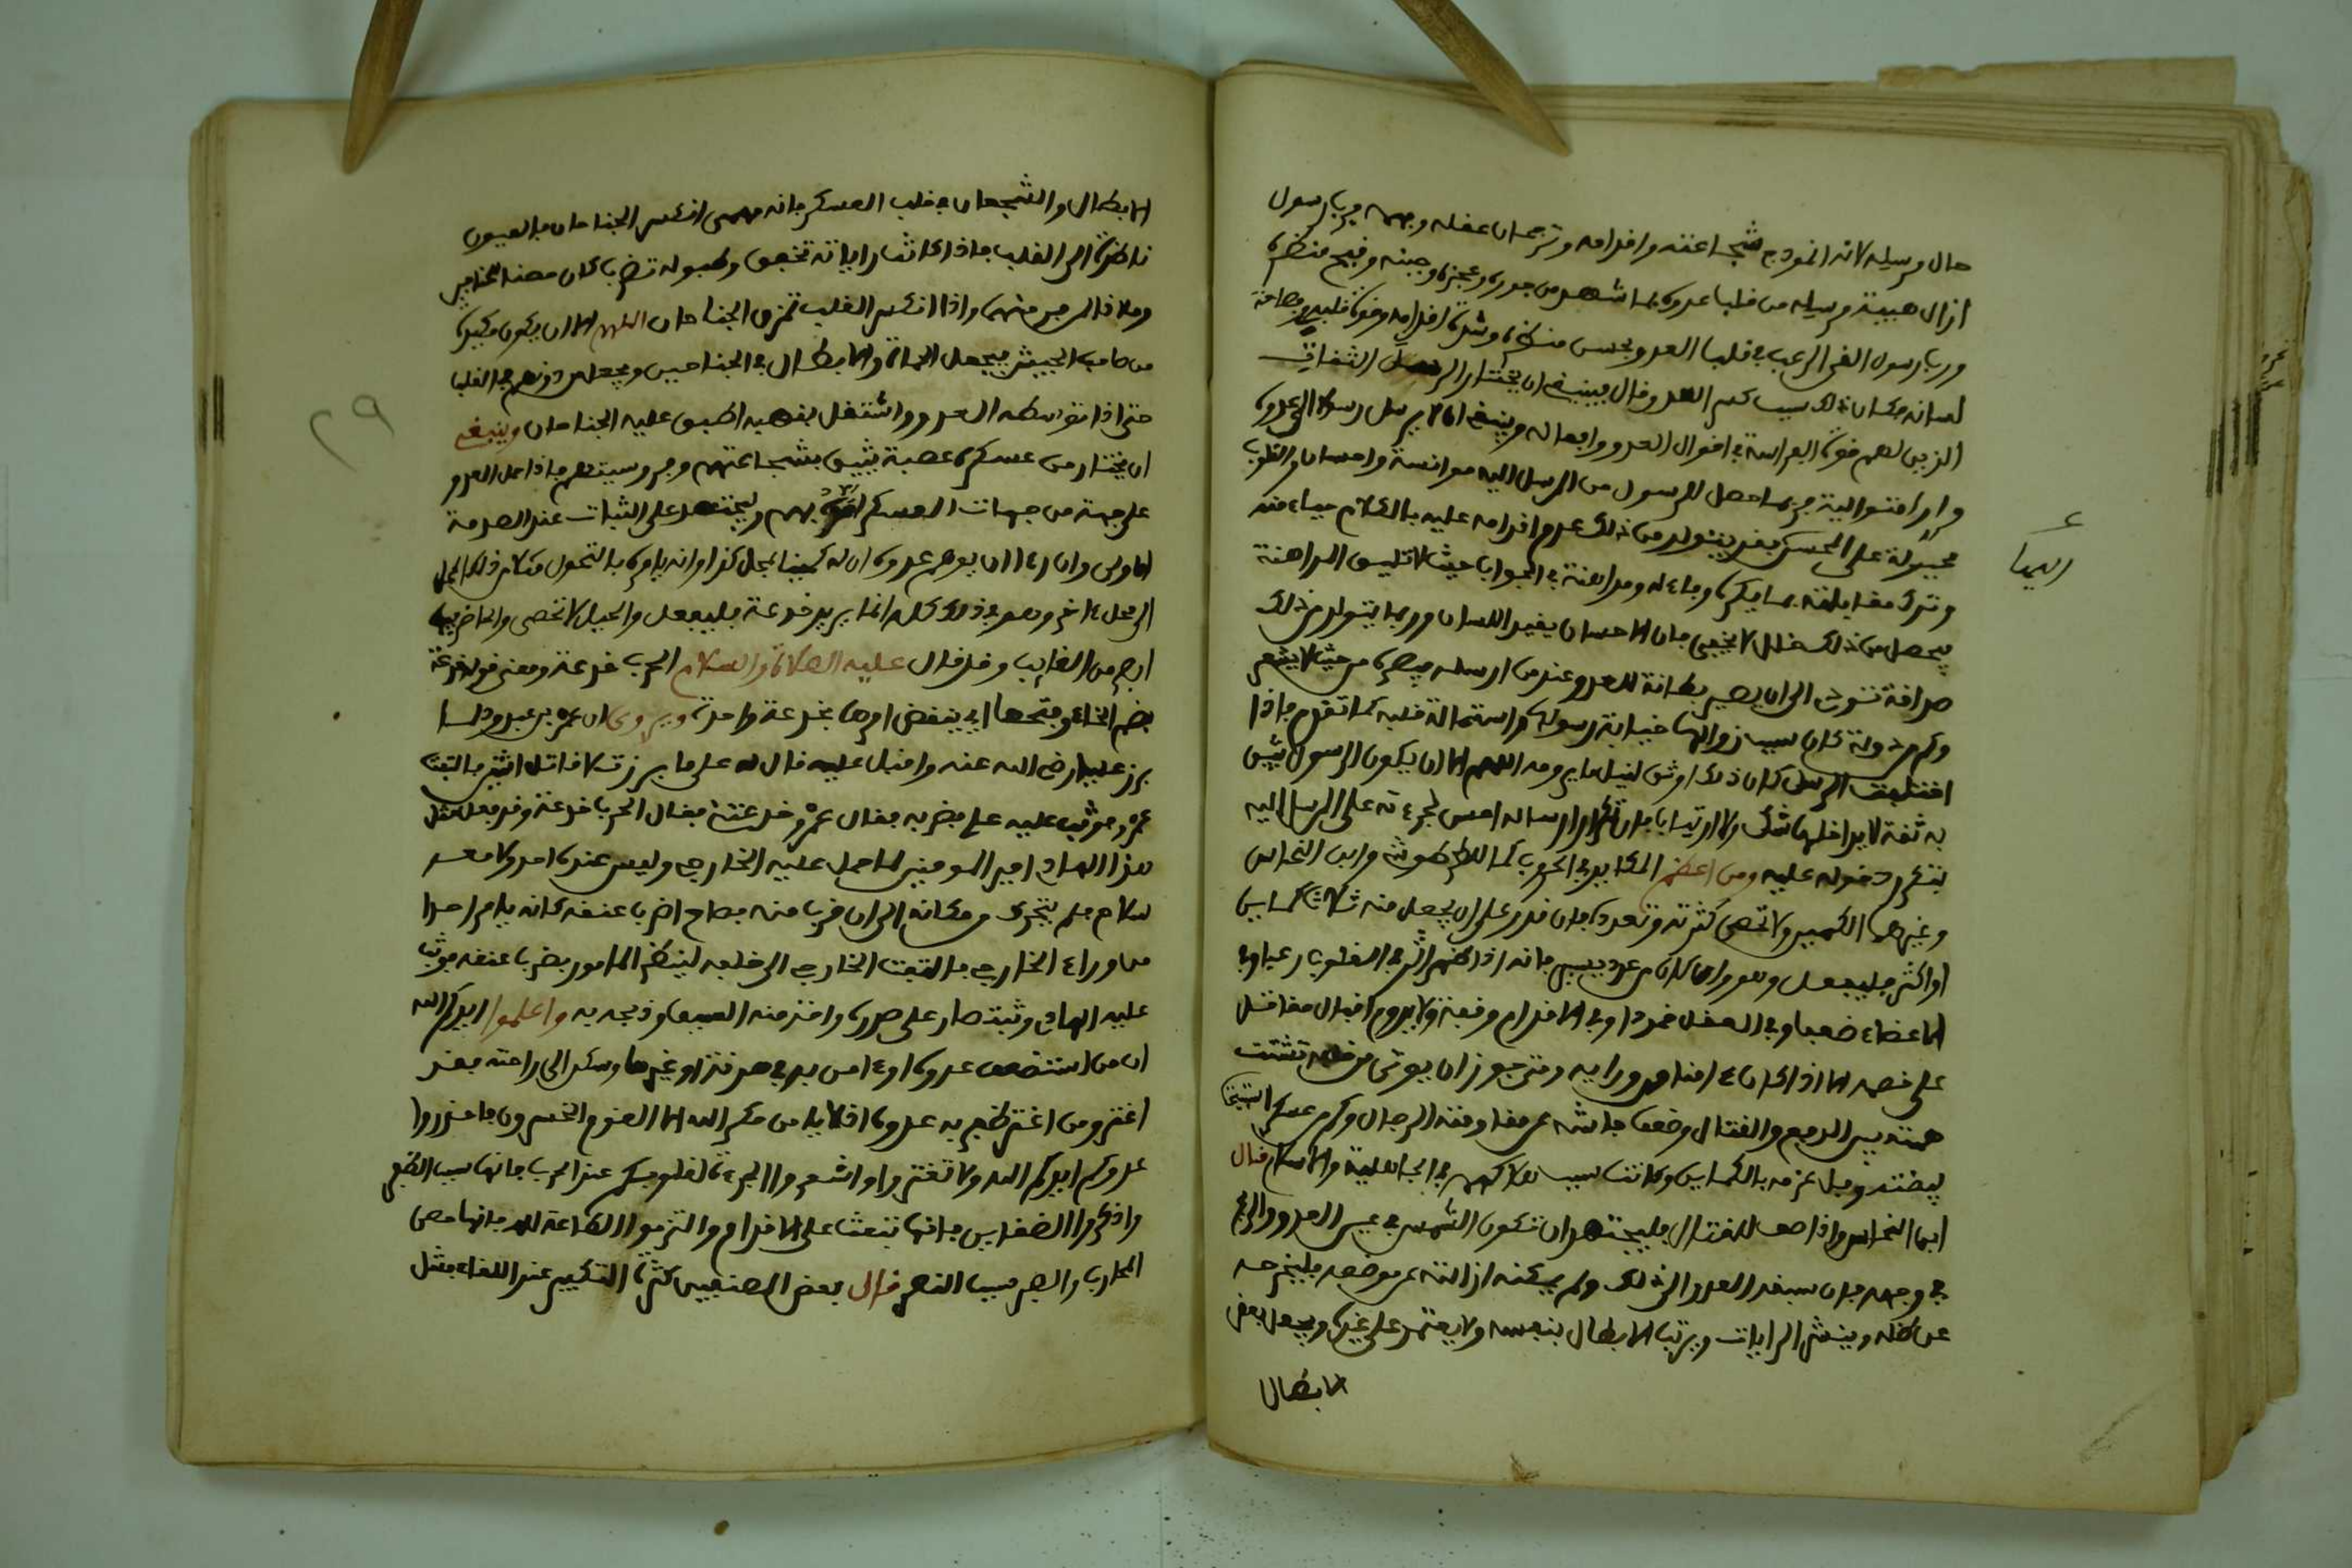 حال مرسله لانه انموذج شجاعته واقدامه وترجمان عقله وجهه فرب رسول
ازال هيبة مرسله من قلب عدوه بما شهد من جوره وعجزه وجبنه وقبح منظره
ورب رسول القى الرعب في قلب العدو بحسن منظره وشدة اقدامه وقوة قلبه وفصاحة
لسانه فكان ذلك سبب كسر العدو قال فينبغي ان يختار الرسل الثقات
الذين لهم قوة الفراسة في اقوال العدو وافعاله وينبغي ان لا يرسل رسولا الى عدوه
مرارا متوالية فربما حصل للرسول من المرسل اليه موانسة واحسان والقلوب
مجبولة على المحسن فقد يتولد من ذلك عدم اقدامه عليه بالكلام حياء منه
وترك مقابلته بما يكره وجاءله ومداهنة في الجواب حيث لا تليق المداهنة
فيحصل من ذلك خلل لا يخفى فان الاحسان يقيد اللسان وربما يتولد من ذلك
صداقة تئول الى ان يصير بطانة للعدو عند من ارسله يبصره من حيث لا يشعر
وكم دولة كان سبب زوالها خيانة رسولها واستمالة قلبه كما تقدم فاذا
اختلفت الرسل كان ذلك اوثق لنيل ما يرومه اللهم الا ان يكون الرسول يثق
به ثقة لا يداخلها شك ولا ارتياب فان تكرار ارساله احسن لجرءته على المرسل اليه
بتكرر دخوله عليه ومن اعظم المكايد في الحروب كما للطرطوشي وابن النحاس
وغيرهما الكمين ولا تحصى كثرته وتعدده فان قدر على ان يجعل منه ثلاث كماين
او اكثر فليفعل وهو وان كان من عدد يسير فانه اذا ظهر اثر في القلوب رعبا وفي
الاعضاء ضعفا وفي العقل خمودا وفي الاقدام وقفة ولا يدوم اقبال مقاتل
على خصمه الا اذا كان ءامنا من ورايه ومتى جوز ان يوتى من خلفه تشتت
همته بين الدفع والقتال وضعف جاشه عن مقاومة الرجال وكم عسكر استبيحت
بيضته وقبل عزمه بالكماين وكانت سبب هلاكهم في الجاهلية والاسلام قال
ابن النحاس واذا صف للقتال فليجتهد ان تكون الشمس في عين العدو والريح
في وجهه فان سبقه العدو الى ذلك ولم يمكنه ازالته عن موضعه فليزحه
عن ذلك وينشر الرايات ويرتب الابطال بنفسه ولا يعتمد على غيره ويجعل بعض
الابطال
ايضا
الابطال والشجعان في قلب العسكر فانه مهمى انكسر الجناحان فالعيون
ناظرة الى القلب فاذا كانت راياته تخفق وطبوله تضرب كان حصنا للجناحين
وملاذا لمن فر منهما واذا انكسر القلب تمزق الجناحان اللهم الا ان يكون مكيدة
من صاحب الجيش فيجعل الحماة والابطال في الجناحين ويجعل من دونهم في القلب
حتى اذا توسطه العدو واشتغل بنهبه اطبق عليه الجناحان وينبغي
ان يختار من عسكره عصبة يثيق بشجاعتهم وفروسيتهم فاذا حمل العدو
على جهة من جهات العسكر امده بهم وليجتهد على الثبات عند الصدمة
الاولى وان راى ان يوهم عدوه ان له كمينا بمحل كذا وانه يامره بالتحول من ذلك المحل
الى محل ءاخر وهو في ذلك كله انما يريد خدعة فليفعل والحيل لا تحصى والحاضر فيها
ابصر من الغايب وقد قال عليه الصلاة والسلام الحرب خدعة ومعنى قوله خدعة
بضم الخاء وفتحها اي ينقضي امرها بخدعة واحدة ويروى ان عمرو بن عبد ود لما
برز علي رضي الله عنه واقبل عليه قال له علي ما برزت لاقاتل اثنين فالتفت
عمرو فوثب عليه علي فضربه فقال عمرو خدعتني فقال الحرب خدعة وقد فعل مثل
هذا الهادي امير المومنين لما حمل عليه الخارجي وليس عنده احد ولا معه
سلاح فلم يتحرك من مكانه الى ان قرب منه فصاح اضرب عنقه كانه يامر احدا
من وراء الخارجي فالتفت الخارجي الى خلفه لينظر المامور بضرب عنقه فوثب
عليه الهادي وثبة صار على صدره واخذ منه السيف وذبحه به واعلموا ايدكم الله
ان من استضعف عدوه او ءامن بدى من هدنة او غيرها وسكن الى راحته فقد
اغتر ومن اغتر ظفر به عدوه افلا يامن مكر الله الا القوم الخاسرون فاحذروا
عدوكم ايدكم الله ولا تغتروا واشعروا الجرءة لقلوبكم عند الحرب فانها سبب الظفر
واذكروا الضغاين فانها تبعث على الاقدام والتزموا الطاعة لله فانها حصن
المحارب والصبر سبب النصر قال بعض المصنفين كثرة التكبير عند اللقاء فشل
٢٩